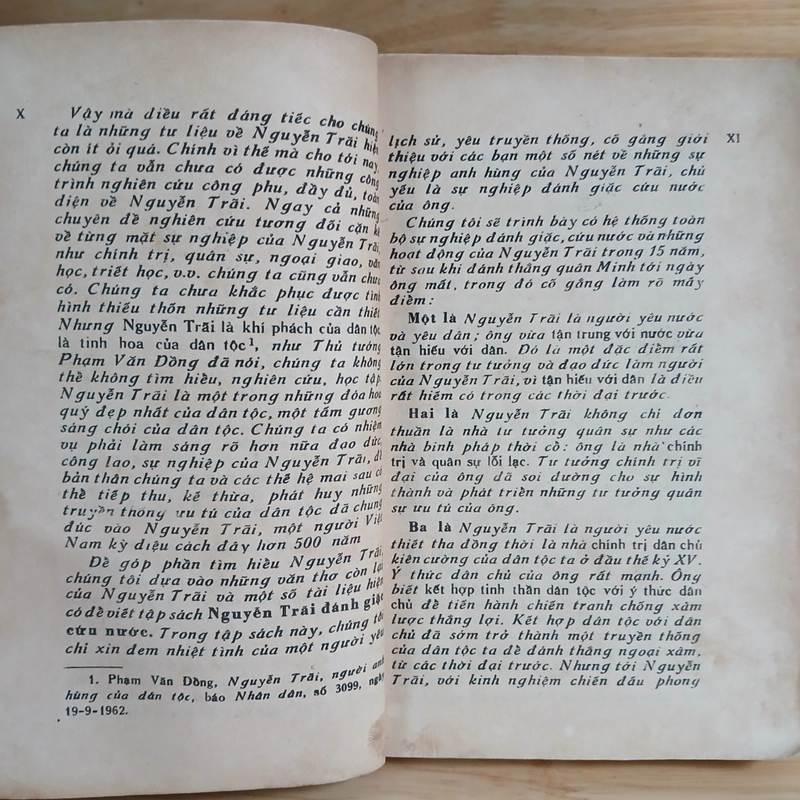 X
Vậy mà điều rất đáng tiếc cho chúng
ta là những tư liệu về Nguyễn Trãi hiện
còn ít ỏi quá. Chính vì thế mà cho tới nay,
chúng ta vẫn chưa có được những công
trình nghiên cứu công phu, đầy đủ, toàn
diện về Nguyễn Trãi. Ngay cả những
chuyên đề nghiên cứu tương đối cặn kẽ
về từng mặt sự nghiệp của Nguyễn Trãi,
như chính trị, quân sự, ngoại giao, văn
học, triết học, v.v. chúng ta cũng vẫn chưa
có. Chúng ta chưa khắc phục được tình
hình thiếu thốn những tư liệu cần thiết
Nhưng Nguyễn Trãi là khí phách của dân tộc
là tinh hoa của dân tộc¹, như Thủ tướng
Phạm Văn Đồng đã nói, chúng ta không
thể không tìm hiểu, nghiên cứu, học tập
Nguyễn Trãi là một trong những đóa hoa
quý đẹp nhất của dân tộc, một tấm gương
sáng chói của dân tộc. Chúng ta có nhiệm
vụ phải làm sáng rõ hơn nữa đạo đức,
công lao, sự nghiệp của Nguyễn Trãi, để
bản thân chúng ta và các thế hệ mai sau có
thể tiếp thu, kế thừa, phát huy những
truyền thống ưu tú của dân tộc đã chung
đúc vào Nguyễn Trãi, một người Việt
Nam kỳ diệu cách đây hơn 500 năm
Để góp phần tìm hiểu Nguyễn Trãi,
chúng tôi dựa vào những văn thơ còn lại
của Nguyễn Trãi và một số tài liệu hiện
có để viết tập sách Nguyễn Trãi đánh giặc
cứu nước. Trong tập sách này, chúng tôi
chỉ xin đem nhiệt tình của một người yêu
1. Phạm Văn Đồng, Nguyễn Trãi, người anh
hùng của dân tộc, báo Nhân dân, số 3099, ngày
19-9-1962.
XI
lịch sử, yêu truyền thống, cố gắng giới
thiệu với các bạn một số nét về những sự
nghiệp anh hùng của Nguyễn Trãi, chủ
yếu là sự nghiệp đánh giặc cứu nước
của ông.
Chúng tôi sẽ trình bày có hệ thống toàn
bộ sự nghiệp đánh giặc, cứu nước và những
hoạt động của Nguyễn Trãi trong 15 năm,
từ sau khi đánh thắng quân Minh tới ngày
ông mất, trong đó cố gắng làm rõ mấy
điểm :
Một là Nguyễn Trãi là người yêu nước
và yêu dân ; ông vừa tận trung với nước vừa
tận hiếu với dân. Đó là một đặc điểm rất
lớn trong tư tưởng và đạo đức làm người
của Nguyễn Trãi, vì tận hiếu với dân là điều
rất hiếm có trong các thời đại trước.
Hai là Nguyễn Trãi không chỉ đơn
thuần là nhà tư tưởng quân sự như các
nhà binh pháp thời cổ : ông là nhà chính
trị và quân sự lỗi lạc. Tư tưởng chính trị vĩ
đại của ông đã soi đường cho sự hình
thành và phát triển những tư tưởng quân
sự ưu tú của ông.
Ba là Nguyễn Trãi là người yêu nước
thiết tha đồng thời là nhà chính trị dân chủ
kiên cường của dân tộc ta ở đầu thế kỷ XV.
Ý thức dân chủ của ông rất mạnh. Ông
biết kết hợp tinh thần dân tộc với ý thức dân
chủ để tiến hành chiến tranh chống xâm
lược thắng lợi. Kết hợp dân tộc với dân
chủ đã sớm trở thành một truyền thống
của dân tộc ta để đánh thắng ngoại xâm,
từ các thời đại trước. Nhưng tới Nguyễn
Trãi, với kinh nghiệm chiến đấu phong